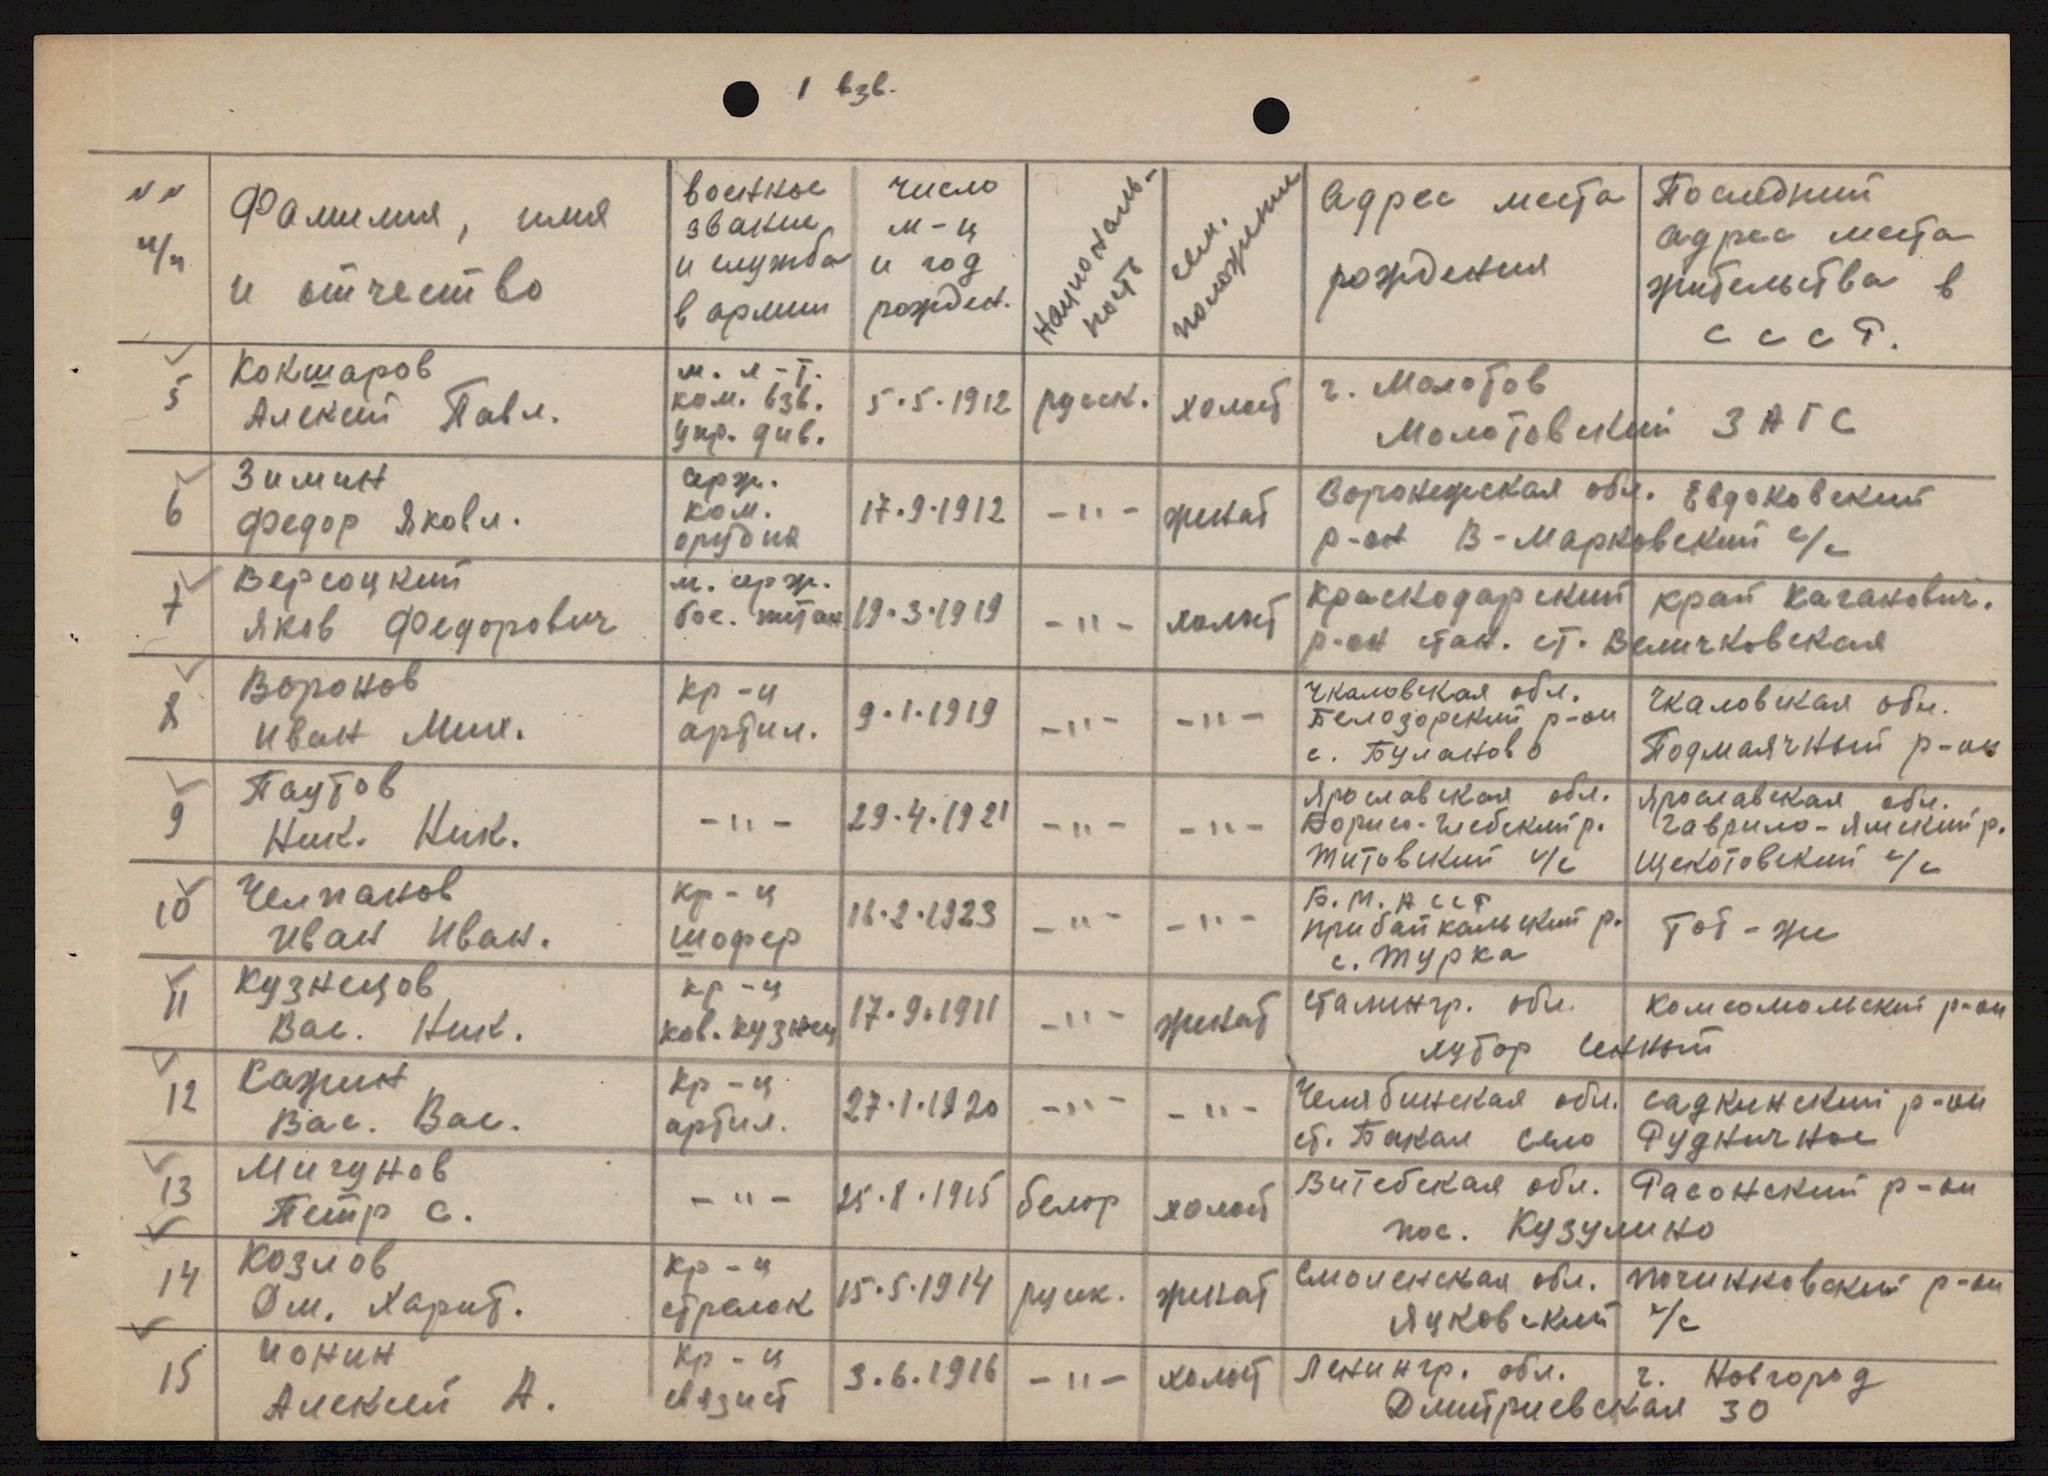 1 взв.
№№ п/п
Фамилия, имя и отчество
военное звание и служба в армии
число м-ц и год рожден.
Националь-ность
сем. положение
Адрес места рождения
Последний адрес места жительства в СССР.
5
Кокшаров Алексей Павл.
м. л-т. ком. взв. упр. див.
5.5.1912
русск.
холост
г. Молотов
Молотовский ЗАГС
6
Зимин Федор Яковл.
серж. ком. орудия
17.9.1912
-"-
женат
Воронежская обл. Евдоковский
р-он В-Марковский с/с
7
Версоцкий Яков Федорович
м. серж. бос. питан
19.3.1919
-"-
холост
Краснодарский край Каганович.
р-он стан. ст. Величковская
8
Воронов Иван Мих.
кр-ц артил.
9.1.1919
-"-
-"-
Чкаловская обл. Белозорский р-он с. Буланово
Чкаловская обл. Подмаячный р-он
9
Паутов Ник. Ник.
-"-
29.4.1921
-"-
-"-
Ярославская обл. Борисо-Глебский р. Титовский с/с
Ярославская обл. Гаврило-Ямский р. Щекотовский с/с
10
Челпанов Иван Иван.
кр-ц шофер
16.2.1923
-"-
-"-
Б.М.АССР Прибайкальский р. с. Турка
Тот-же
11
Кузнецов Вас. Ник.
кр-ц ков. кузнец
17.9.1911
-"-
женат
Сталингр. обл. Комсомольский р-он
хутор Сенный
12
Сажин Вас. Вас.
кр-ц артил.
27.1.1920
-"-
-"-
Челябинская обл. Садкинский р-он
ст. Бакал село Рудничное
13
Мигунов Петр С.
-"-
25.8.1915
белор
холост
Витебская обл. Расонский р-он
пос. Кузулино
14
Козлов Дм. Харит.
кр-ц стрелок
15.5.1914
русск.
женат
Смоленская обл. Починковский р-он
Яцковский с/с
15
Ионин Алексей А.
кр-ц связист
3.6.1916
-"-
холост
Ленингр. обл. г. Новгород
Дмитриевская 30